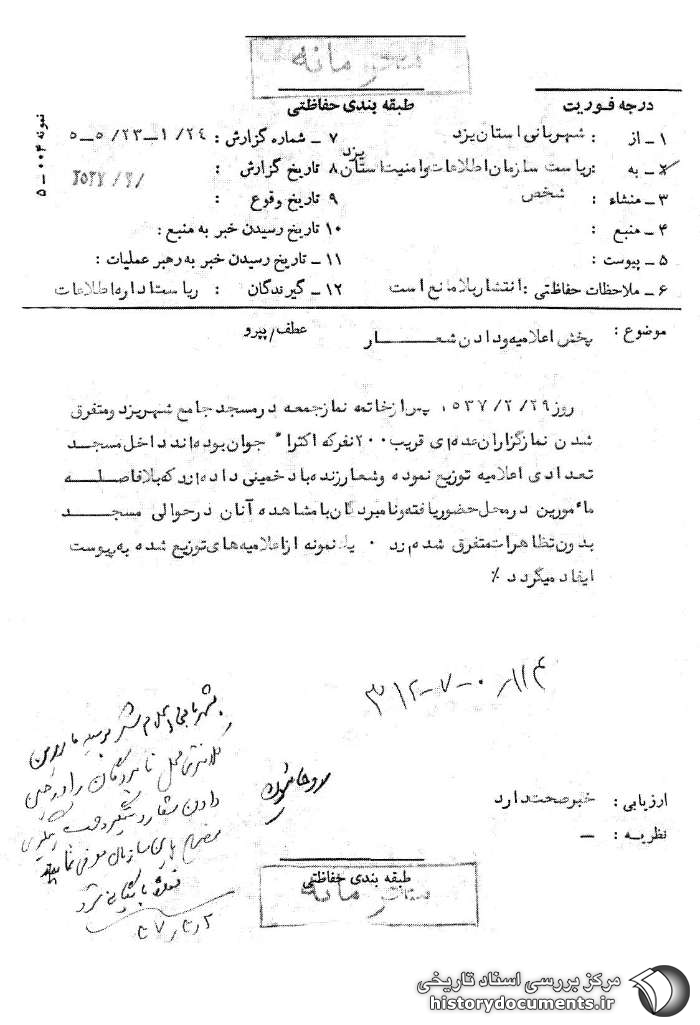 محرمانه
درجه فوریت
طبقه بندی حفاظتی
نمونه ۰۰۴ – ۵
۱ – از : شهربانی استان یزد
۲ – به : ریاست سازمان اطلاعات وامنیت استان یزد
۳ – منشاء : شخص
۴ – منبع :
۵ – پیوست :
۶ – ملاحظات حفاظتی : انتشار بلامانع است
۷ – شماره گزارش : ۲۴ /۱–۲۳/ ۵–۵
۸ تاریخ گزارش : /۲/ ۲۵۳۷
۹ تاریخ وقوع :
۱۰ تاریخ رسیدن خبر به منبع :
۱۱ – تاریخ رسیدن خبر به رهبر عملیات :
۱۲ – گیرندگان : ریاست اداره اطلاعات
موضوع : پخش اعلامیه ودادن شعــــــار
عطف/پیرو
روز ۲۹/ ۲/ ۵۳۷ پس ازخاتمه نمازجمعه درمسجد جامع شهریزد ومتفرق
شدن نمازگزاران عده‌ای قریب ۲۰۰ نفرکه اکثرا" جوان بوده‌اند داخل مسجد
تعدادی اعلامیه توزیع نموده وشعارزنده باد خمینی داده‌اند که بلافاصلــــه
مأمورین درمحل حضوریافته ونامبردگان بامشاهده آنان درحوالی مسجـــد
بدون تظاهرات متفرق شده‌اند ۰ یک نمونه ازاعلامیه‌های توزیع شده به پیوست
ایفاد میگردد ٪
۳۱۲–۷–۰
بشهربانی اعلام بوسیله مامورین
کلانتری محل نامبردگان را درحین
دادن شعار دستگیر
سازمان معرفی نمایند
ارزیابی : خبرصحت دارد
نظریه : –
طبقه بندی حفاظتی
محرمانه
مرکز بررسی اسناد تاریخی
historydocuments.ir